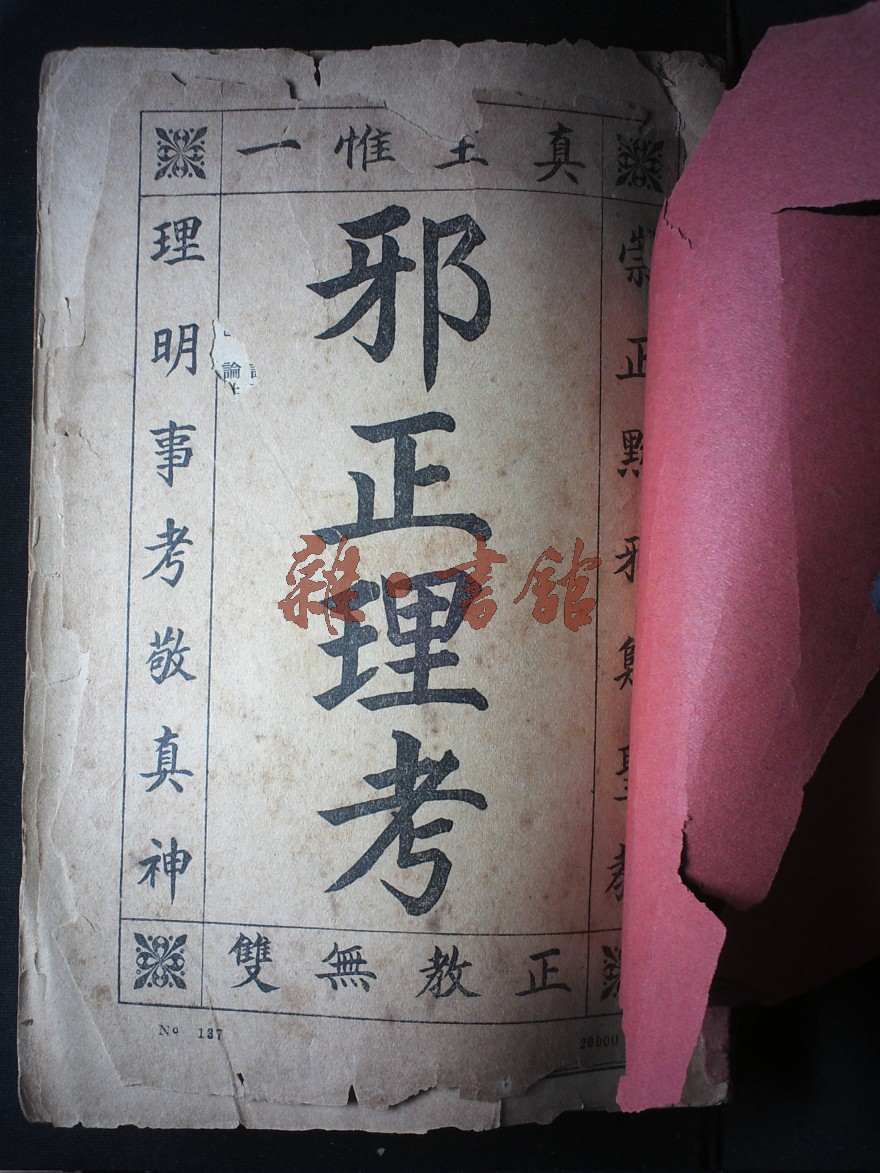 真主惟一
崇正邪聖教
邪正理考
雜·書館
論
理明事考敬真神
正教無雙
Nº 137
20000